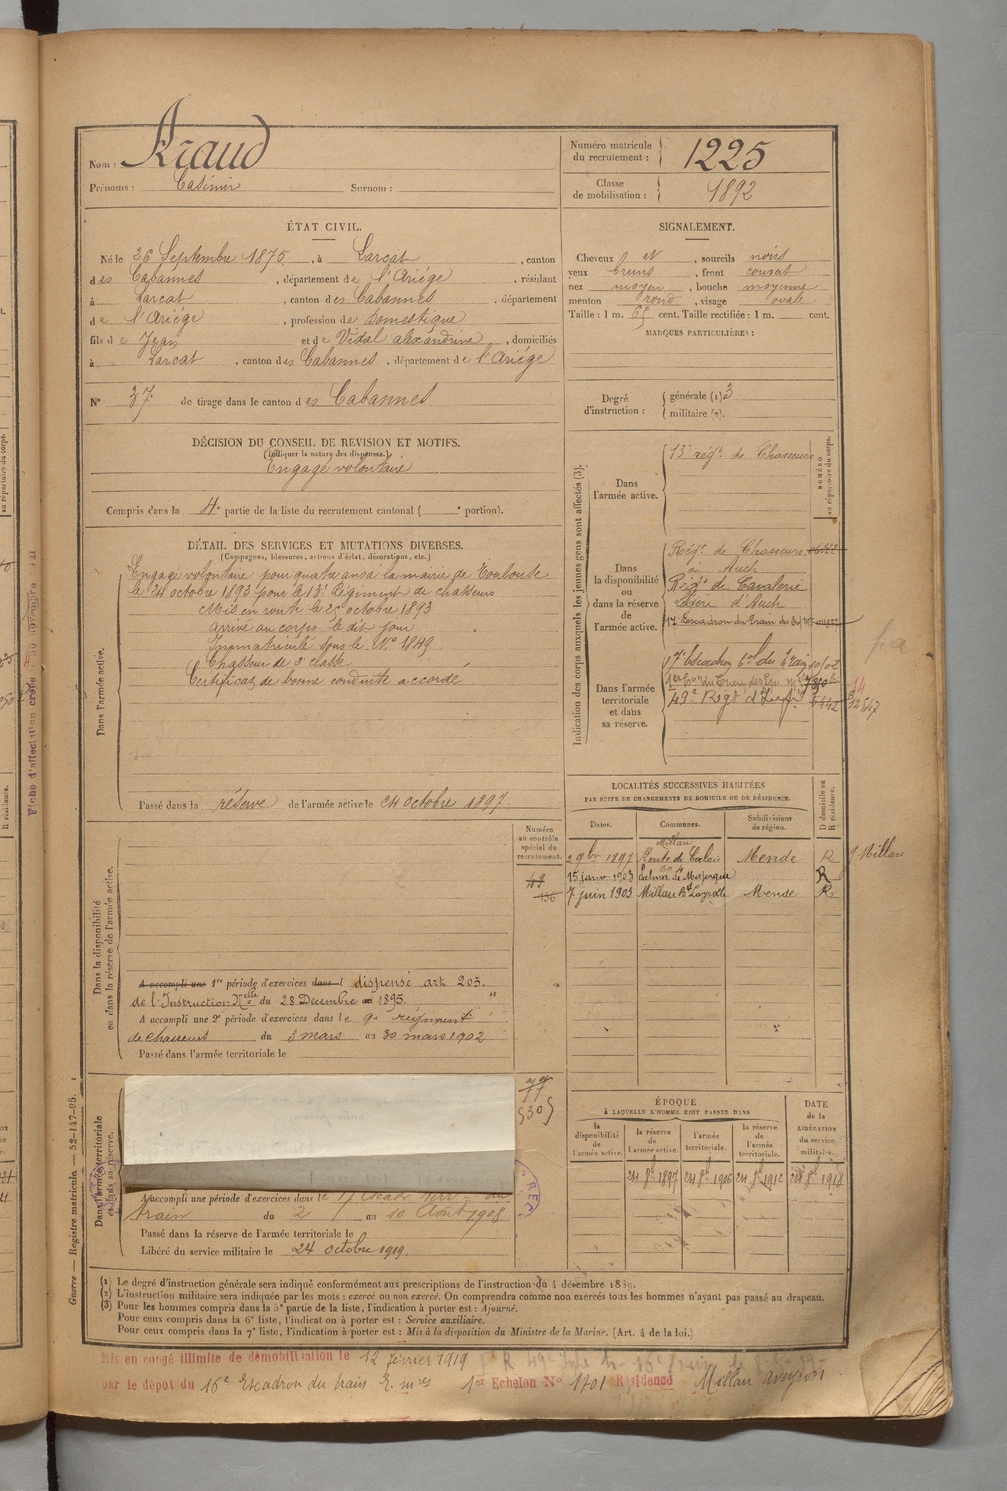 Nom : Araud
Prénoms : Casimir Surnom :
Numéro matricule du recrutement : 1225
Classe de mobilisation : 1892
ÉTAT CIVIL.
Né le 26 Septembre 1875, à Larcat, canton
des Cabannes, département de l'Ariége, résidant
à Larcat, canton des Cabannes, département
de l'Ariége, profession de Domestique
fils de Jean et de Vidal alexandrine, domiciliés
à Larcat, canton des Cabannes, département de l'Ariége
N° 37 de tirage dans le canton des Cabannes
SIGNALEMENT.
Cheveux et, sourcils noirs
yeux bruns, front couvert
nez moyen, bouche moyenne
menton rond, visage ovale
Taille : 1 m. 65 cent. Taille rectifiée : 1 m. cent.
MARQUES PARTICULIÈRES :
Degré d'instruction : générale (1) 3
militaire (2).
DÉCISION DU CONSEIL DE REVISION ET MOTIFS.
(Indiquer la nature des dispenses.)
Engagé volontaire
Compris dans la 4e partie de la liste du recrutement cantonal ( e portion).
DÉTAIL DES SERVICES ET MUTATIONS DIVERSES.
(Campagnes, blessures, actions d'éclat, décorations, etc.)
Dans l'armée active.
Engagé volontaire pour quatre ans à la mairie de Toulouse
le 24 octobre 1893 pour le 13e Régiment de chasseurs
Mis en route le 25 octobre 1893
Arrivé au corps le dit jour
Immatriculé sous le No 1849
Chasseur de 2e classe
Certificat de bonne conduite accordé
Passé dans la réserve de l'armée active le 24 octobre 1897
Indication des corps auxquels les jeunes gens sont affectés (3).
NUMÉRO au répertoire du corps.
Dans l'armée active.
13e regt de Chasseurs
Dans la disponibilité ou dans la réserve de l'armée active.
Régt de Chasseurs
à Auch
Régt de Cavalerie
Légère d'Auch
Dans l'armée territoriale et dans sa réserve.
17e Escadron tal du Train
49e Regt d'Infie
LOCALITÉS SUCCESSIVES HABITÉES
PAR SUITE DE CHANGEMENTS DE DOMICILE OU DE RÉSIDENCE.
Dates. Communes. Subdivisions de région. D domicile ou R résidence.
2 9bre 1897 Millau Route de Calais Mende R
15 janv 1903 R
7 juin 1903 Millau Mende R
Numéro au contrôle spécial du recrutement.
49
136
Dans la disponibilité ou dans la réserve de l'armée active.
A accompli une 1re période d'exercices dans l dispensé art. 205.
de l'Instruction Nelle du 28 Décembre au 1895.
A accompli une 2e période d'exercices dans le 9e régiment
de chasseurs du 3 mars au 30 mars 1902
Passé dans l'armée territoriale le
Dans l'armée territoriale et dans sa réserve.
A accompli une période d'exercices dans le 17 Escadn terr du
train du 2 au 10 Août 1908
Passé dans la réserve de l'armée territoriale le
Libéré du service militaire le 24 octobre 1919.
ÉPOQUE
À LAQUELLE L'HOMME DOIT PASSER DANS
la disponibilité de l'armée active. la réserve de l'armée active. l'armée territoriale. la réserve de l'armée territoriale.
DATE de la LIBÉRATION du service militaire.
24 8bre 1897 24 8bre 1906 24 8bre 1912 24 8bre 1918
(1) Le degré d'instruction générale sera indiqué conformément aux prescriptions de l'instruction du 4 décembre 1889.
(2) L'instruction militaire sera indiquée par les mots : exercé ou non exercé. On comprendra comme non exercés tous les hommes n'ayant pas passé au drapeau.
(3) Pour les hommes compris dans la 5e partie de la liste, l'indication à porter est : Ajourné.
Pour ceux compris dans la 6e liste, l'indication à porter est : Service auxiliaire.
Pour ceux compris dans la 7e liste, l'indication à porter est : Mis à la disposition du Ministre de la Marine. (Art. 4 de la loi.)
Mis en congé illimité de démobilisation le 12 février 1919
par le dépôt du 16e Escadron du train 1er Echelon No 1701 Résidence Millau Aveyron
Guerre — Registre matricule — 52-147-95.